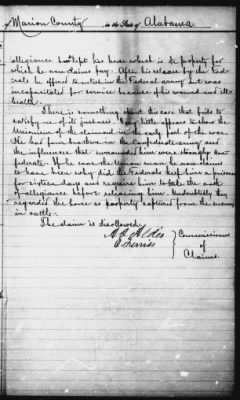 Marion County in the State of Alabama
allegiance but kept his horse which is the property for
which he now claims pay. After his release by the Fed-
erals he offered to enlist in the Federal army but was
incapacitated for service because of his wound and ill
health.
There is something about this case that fails to
satisfy me of its justness. Very little appears to show the
Unionism of the claimant in the early part of the war.
He has four brothers in the Confederate army and
the influences that surrounded him were strongly Con-
federate. If he was the Union man he now claims
to have been why did the Federals keep him a prisoner
for sixteen days and require him to take the oath
of allegiance before releasing him. Undoubtedly they
regarded the horse as property captured from the enemy
in battle.
The claim is disallowed.
A.O. Aldis
O. Ferriss
Commissioners
of
Claims.